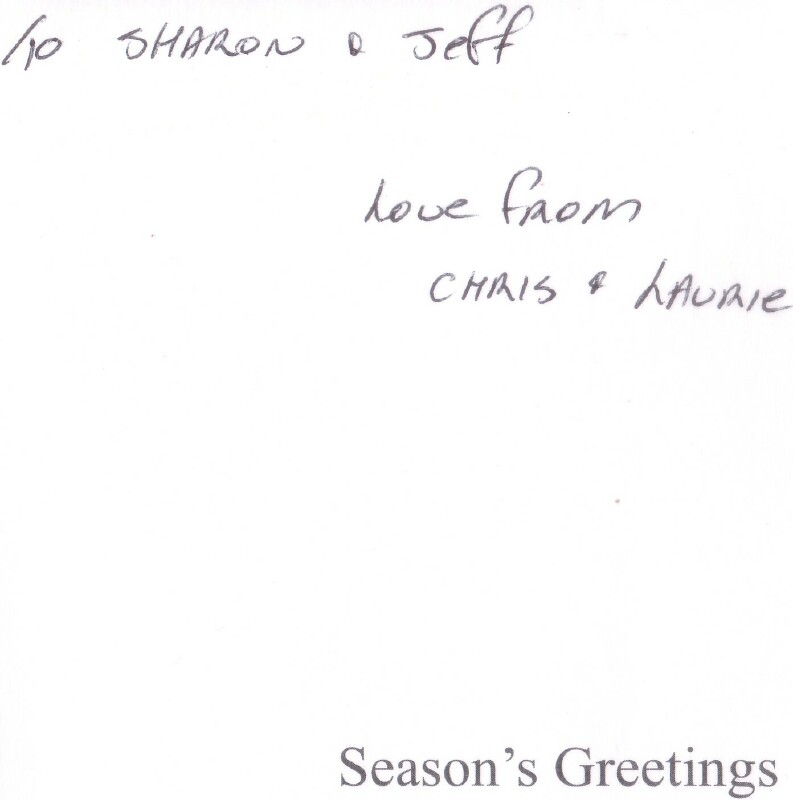 To SHARON & Jeff
Love from
CHRIS & LAURIE
Season's Greetings